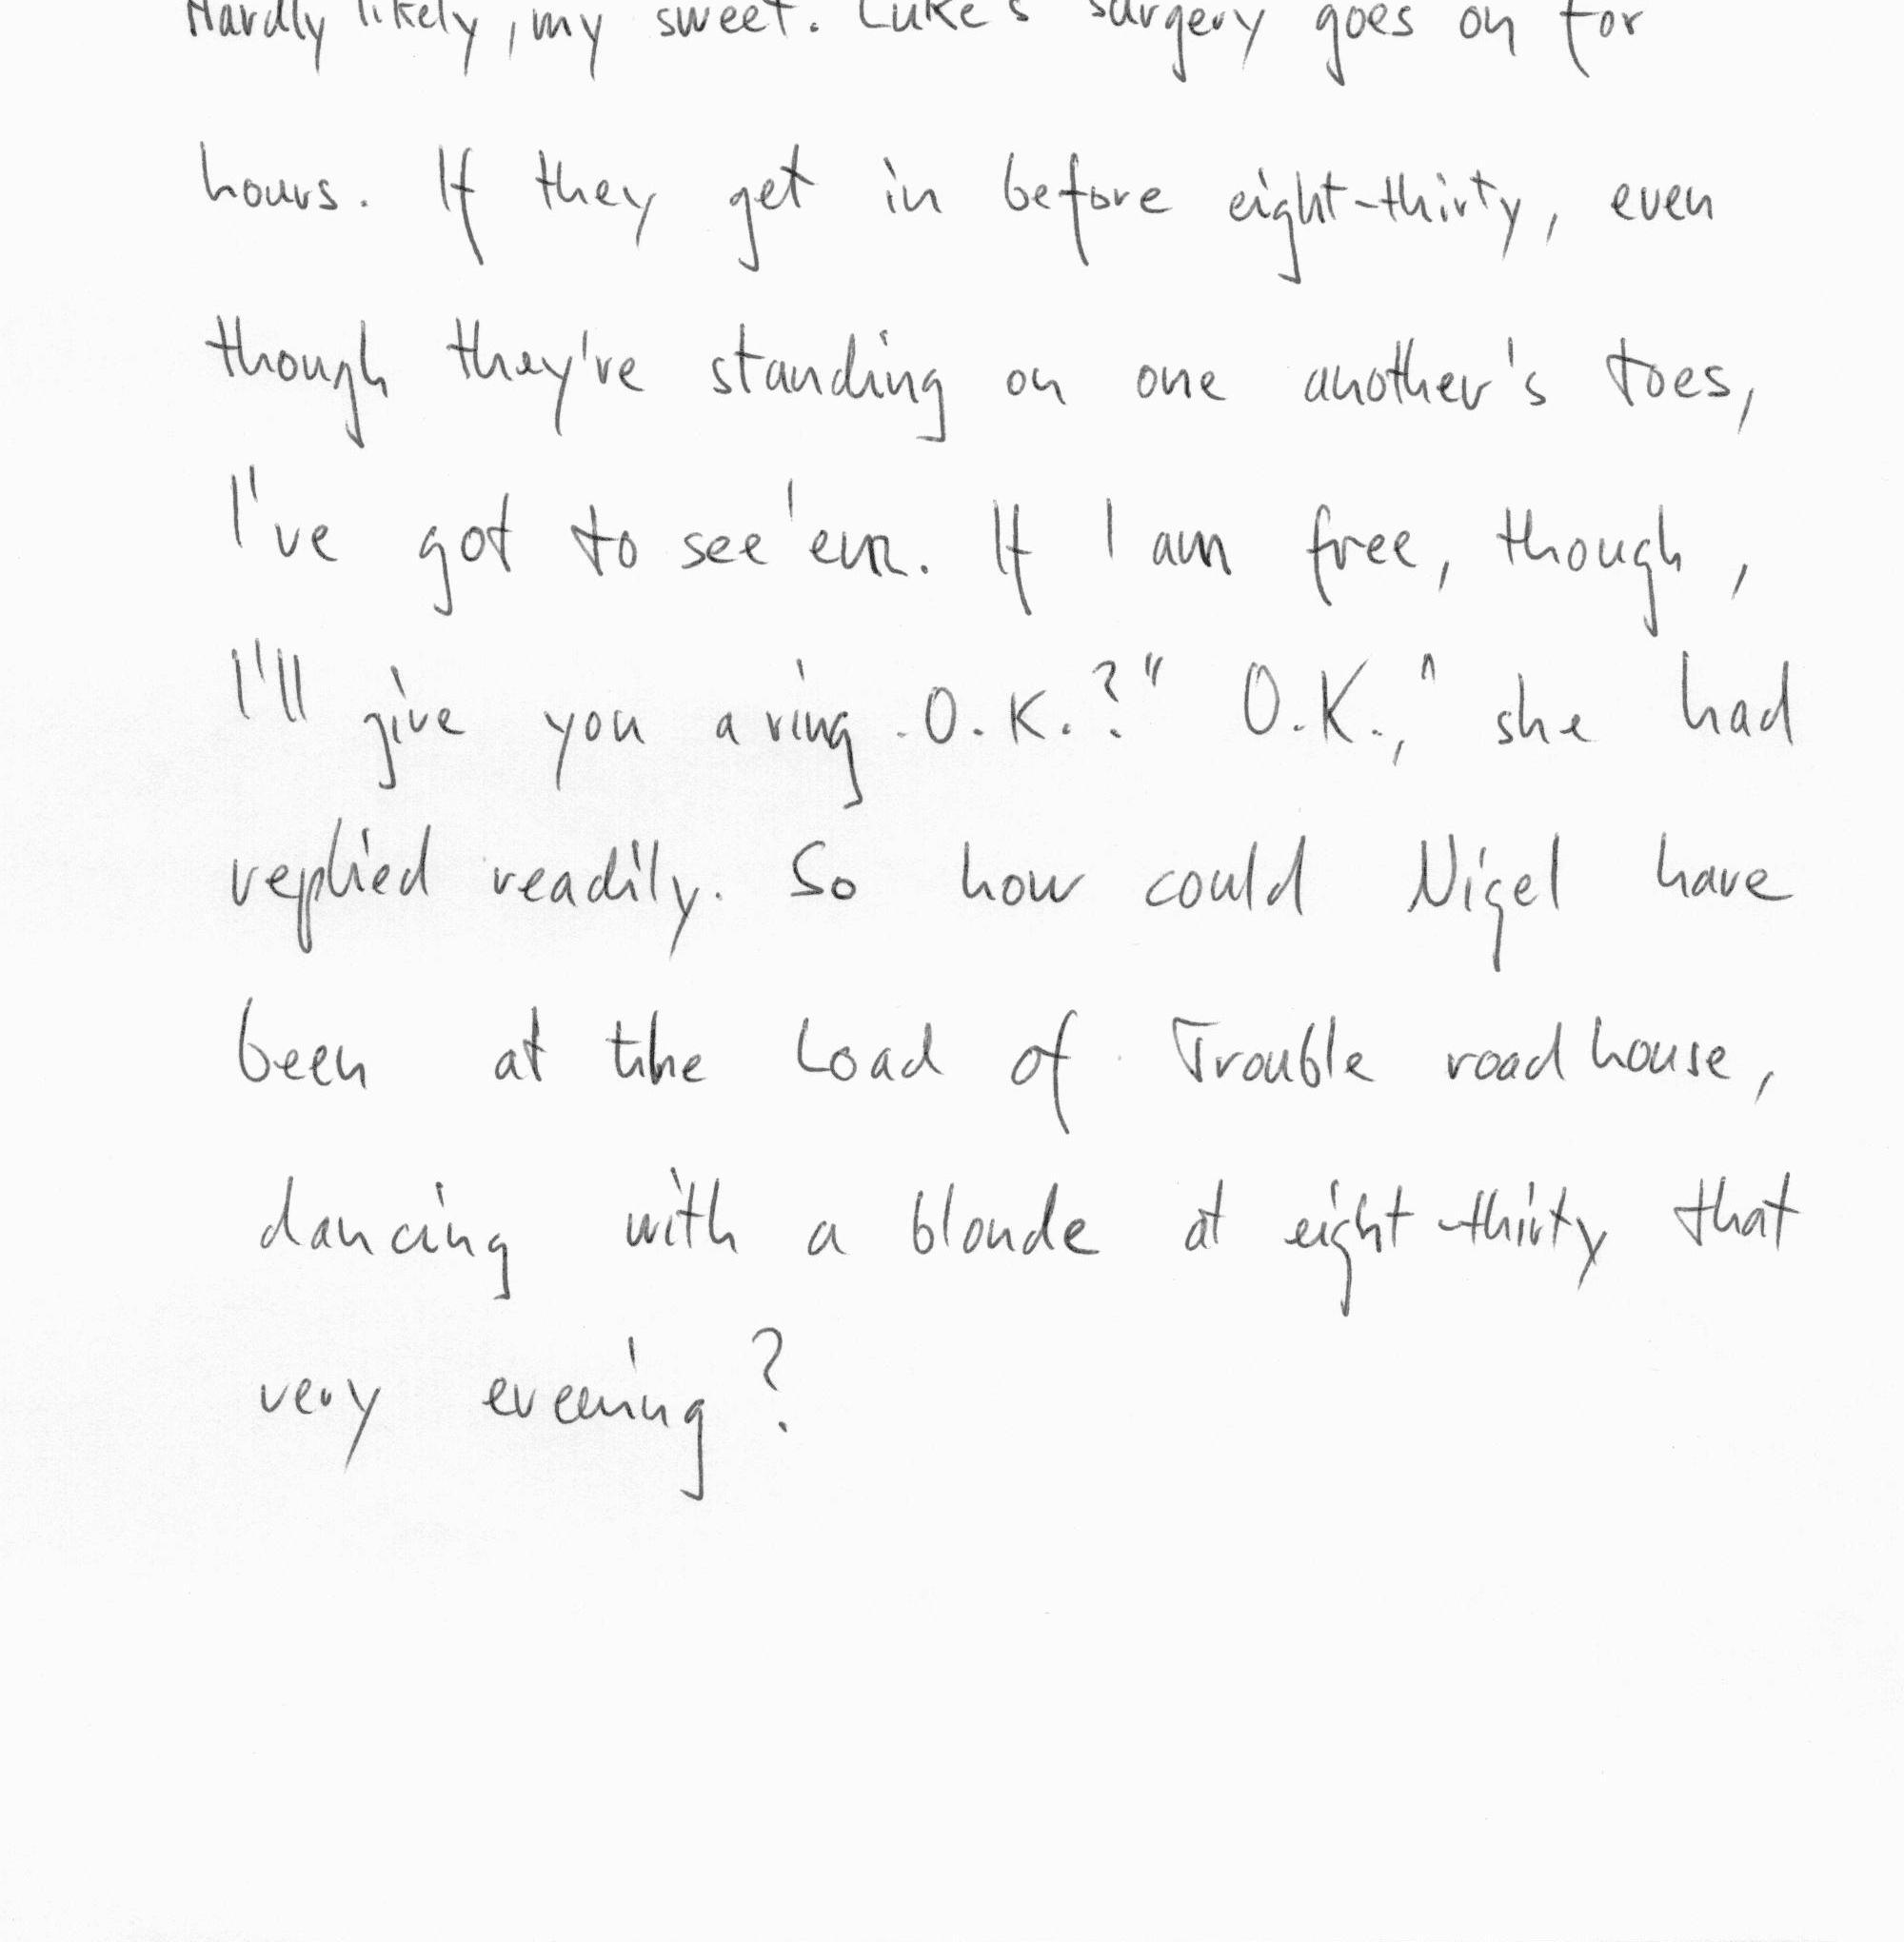 Hardly likely, my sweet. Luke's surgery goes on for
hours. If they get in before eight-thirty, even
though they're standing on one another's toes,
I've got to see 'em. If I am free, though,
I'll give you a ring. O.K.?" O.K.," she had
replied readily. So how could Nigel have
been at the Load of Trouble roadhouse,
dancing with a blonde at eight-thirty that
very evening?